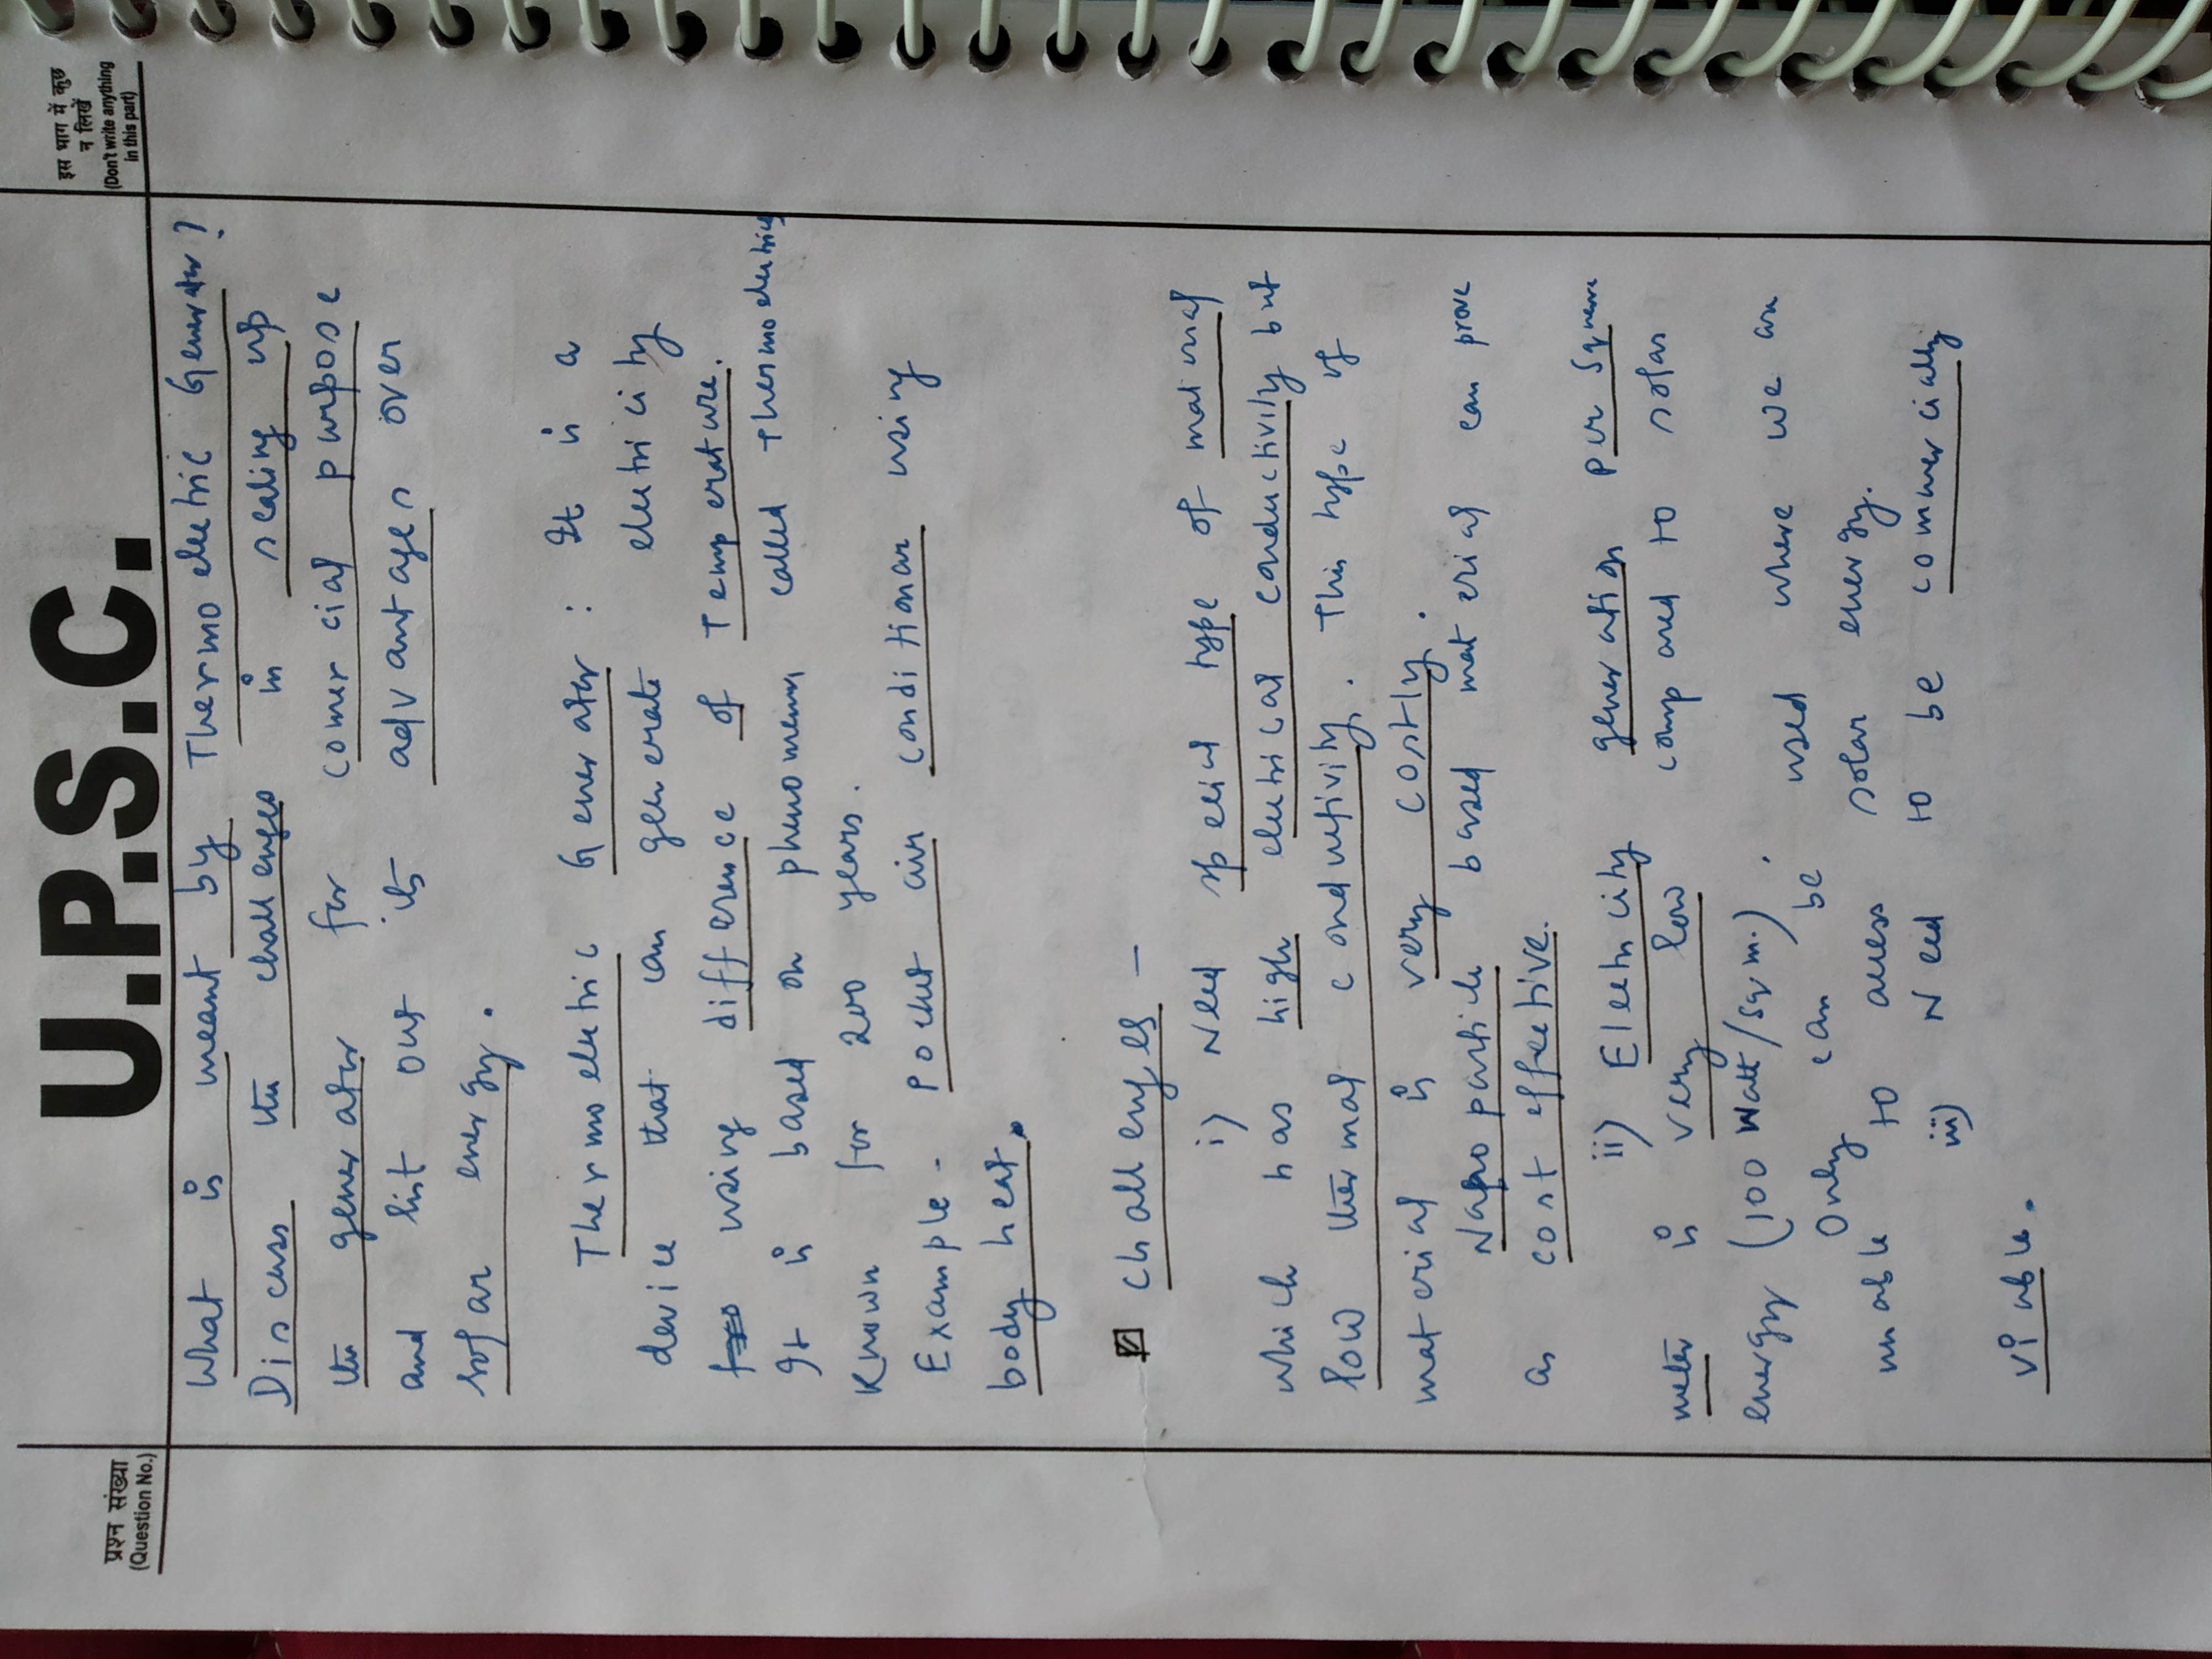 U.P.S.C.
प्रश्न संख्या
(Question No.)
इस भाग में कुछ
न लिखें
(Don't write anything
in this part)
What is meant by Thermo electric Generator?
Discuss the challenges in scaling up
the generator for comercial purpose
and list out its advantages over
solar energy.
Thermo electric Generator : It is a
device that can generate electricity
using difference of Temperature.
It is based on phenomenon called Thermoelectric
Known for 200 years.
Example - Pocket air conditionar using
body heat.
Challenges -
i) Need special type of material
which has high electrical conductivity but
low thermal conductivity. This type of
material is very costly.
Nano particle based material can prove
as cost effective.
ii) Electricity generation per square
meter is very low compared to solar
energy (100 Watt/sq m.).
Only can be used where we are
unable to access solar energy.
iii) Need to be commercially
viable.